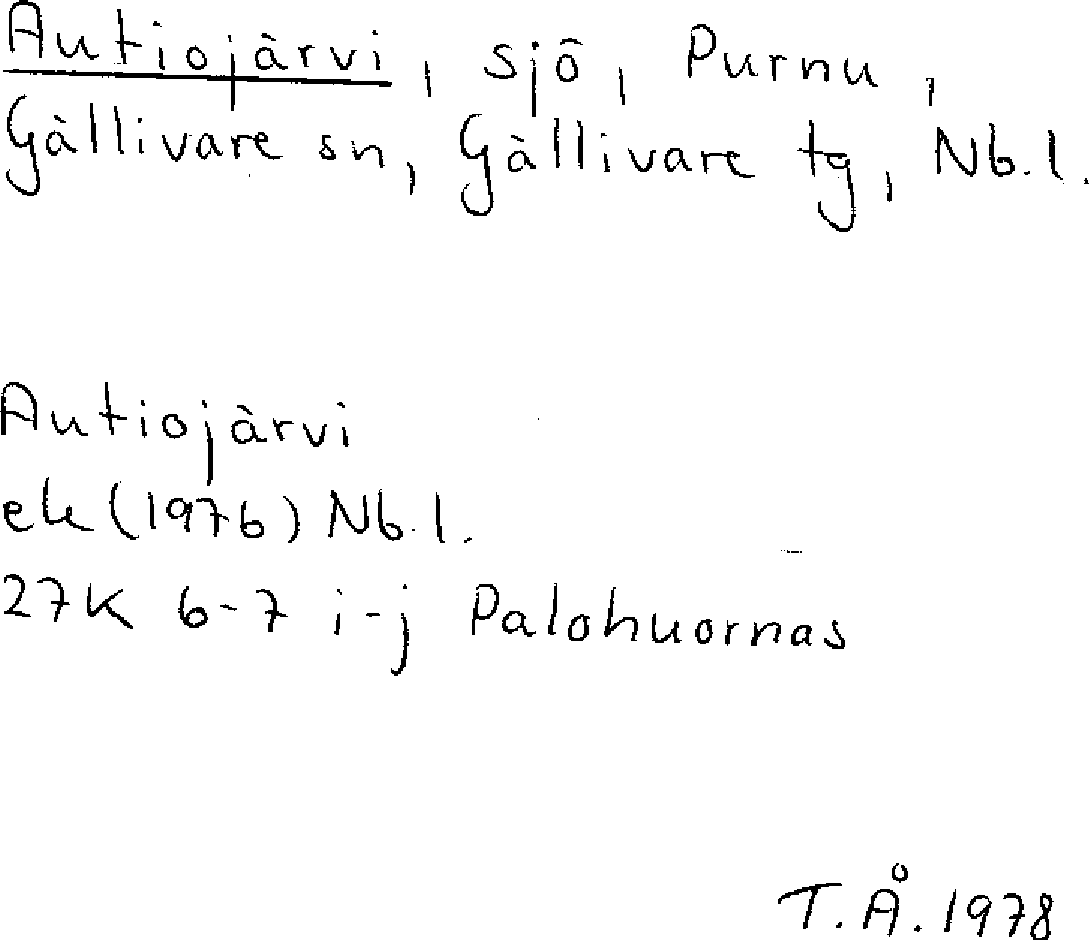 Autiojärvi, sjö, Purnu,
Gällivare sn, Gällivare tg, Nb.l.
Autiojärvi
ek (1976) Nb.l.
27K 6-7 i-j Palohuornas
T.Å. 1978